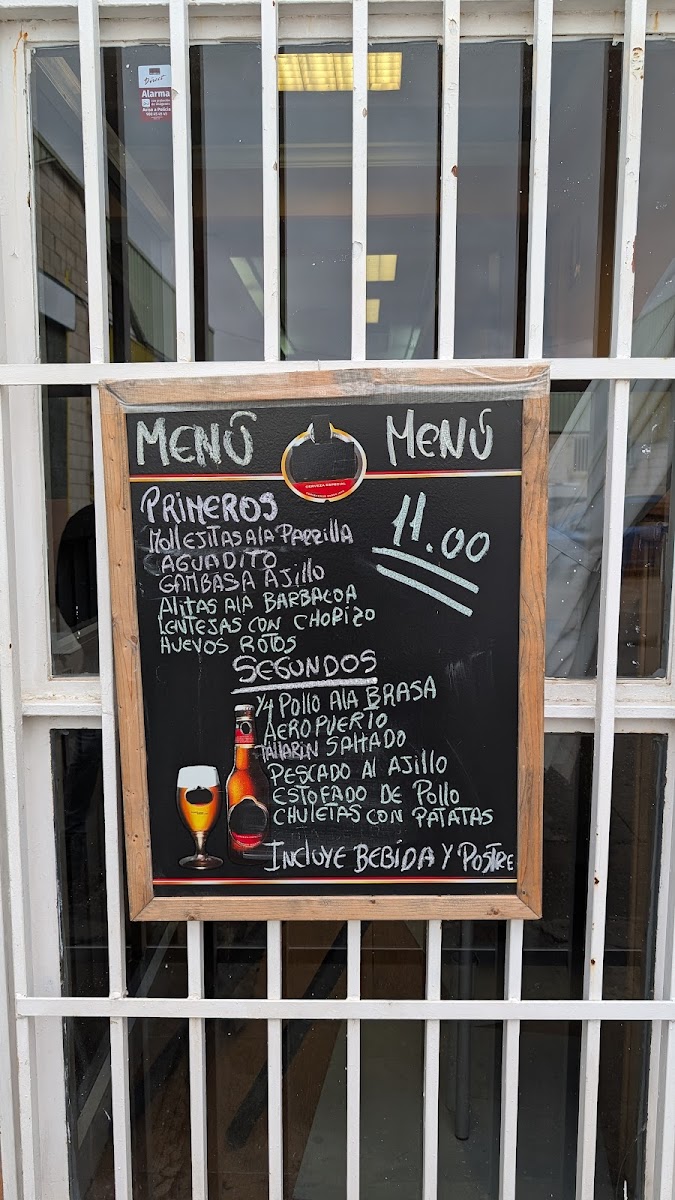 Alarma
MENÚ
MENÚ
CERVEZA ESPECIAL
PRIMEROS
11.00
MOLLEJITAS A LA PARRILLA
AGUADITO
GAMBAS A AJILLO
ALITAS A LA BARBACOA
LENTEJAS CON CHORIZO
HUEVOS ROTOS
SEGUNDOS
1/4 POLLO A LA BRASA
AEROPUERTO
TALLARIN SALTADO
PESCADO AL AJILLO
ESTOFADO DE POLLO
CHULETAS CON PATATAS
INCLUYE BEBIDA Y POSTRE